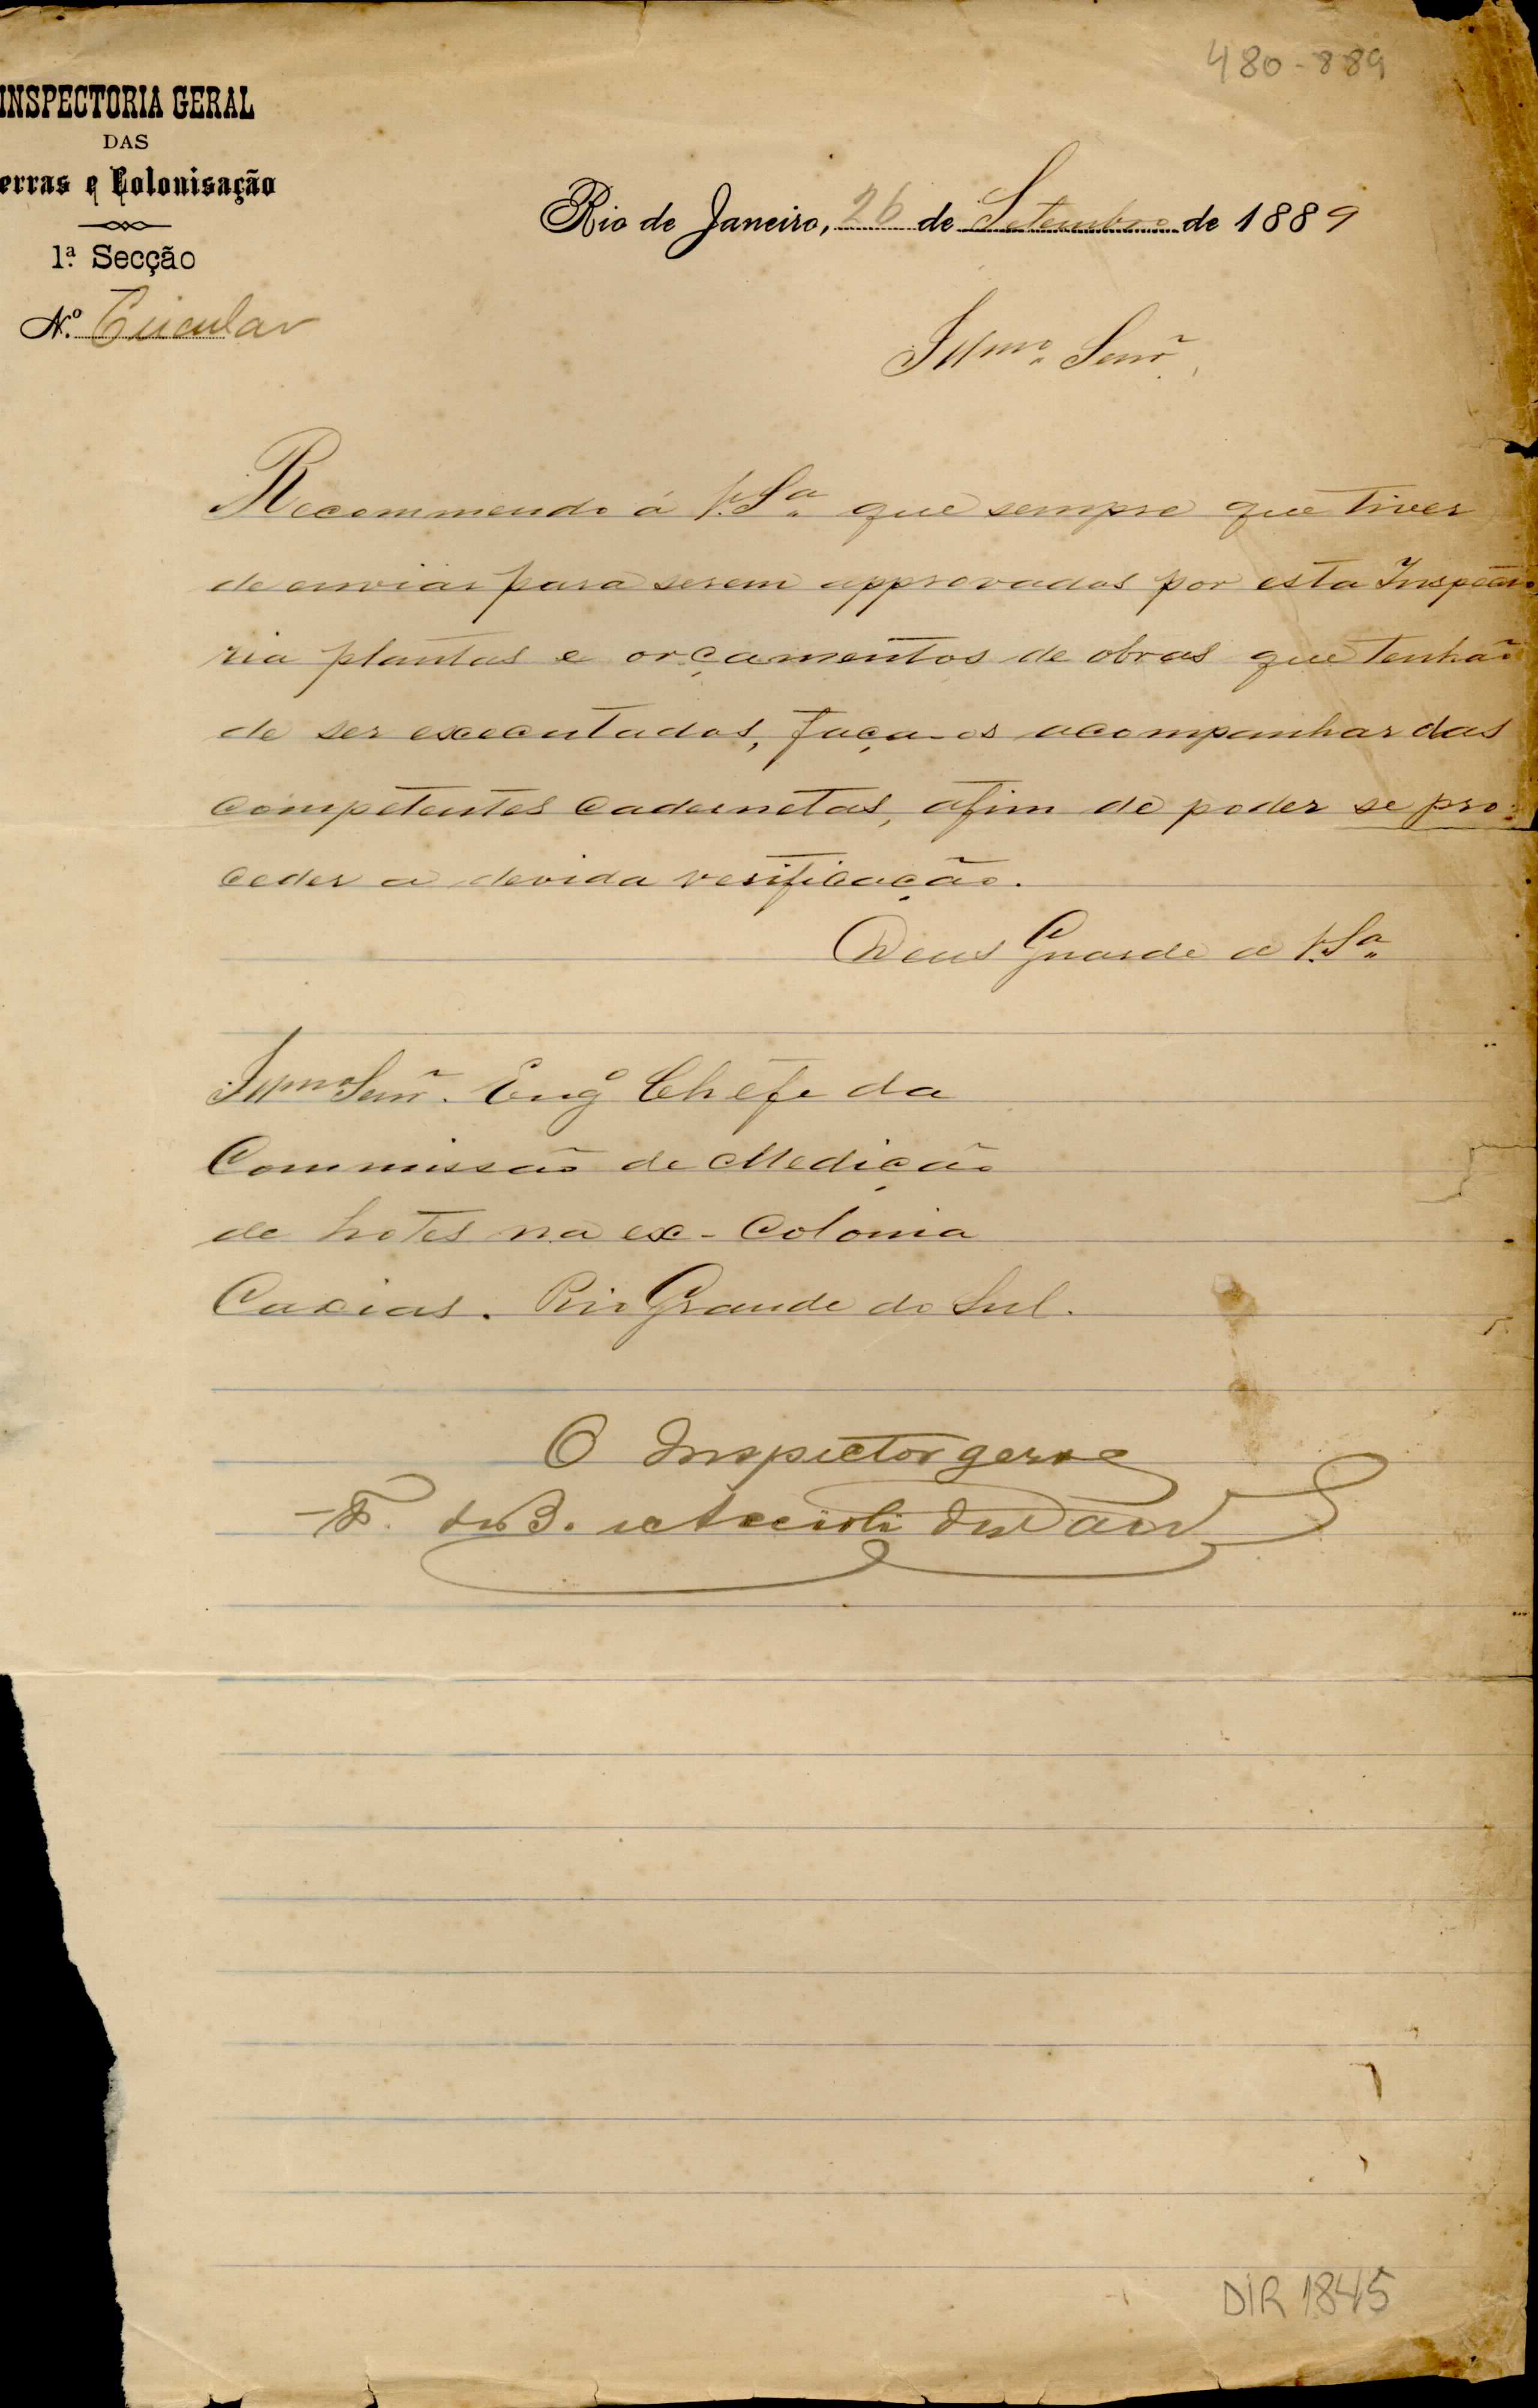 480-889
INSPECTORIA GERAL
DAS
erras e Colonisação
1ª Secção
Nº Circular
Rio de Janeiro, 26 de Setembro de 1889
Illmo. Senr.
Recommendo á V.Sª que sempre que tiver
de enviar para serem approvados por esta Inspecto
ria plantas e orçamentos de obras que tenhão
de ser executadas, faça-os acompanhar das
competentes cadernetas, afim de poder se pro-
ceder a devida verificação.
Deus Guarde a V.Sª
Illmo Senr. Engº Chefe da
Commissão de Medição
de Lotes na ex-Colonia
Caxias. Rio Grande do Sul.
O Inspector geral
F. de B. e Accioli de
DIR 1845